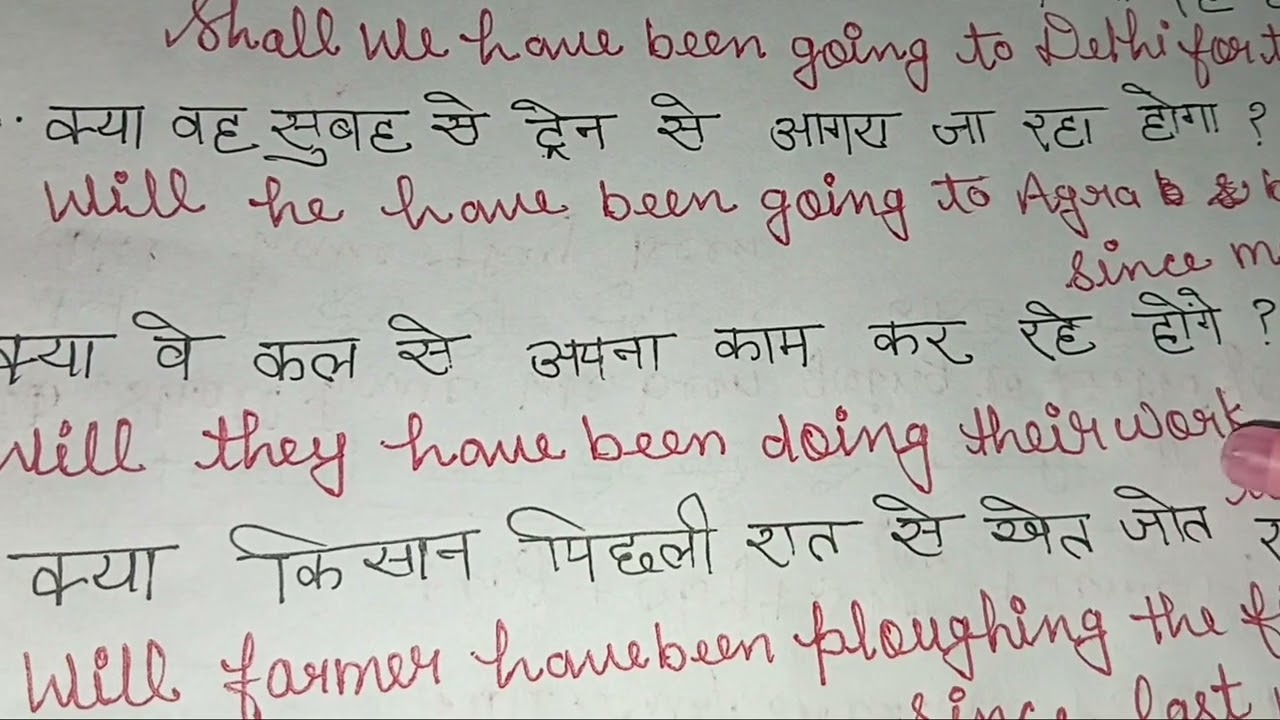 Shall we have been going to Delhi for
क्या वह सुबह से ट्रेन से आगरा जा रहा होगा ?
Will he have been going to Agra
since
क्या वे कल से अपना काम कर रहे होंगे ?
Will they have been doing their work
क्या किसान पिछली रात से खेत जोत
Will farmer have been ploughing the
since last